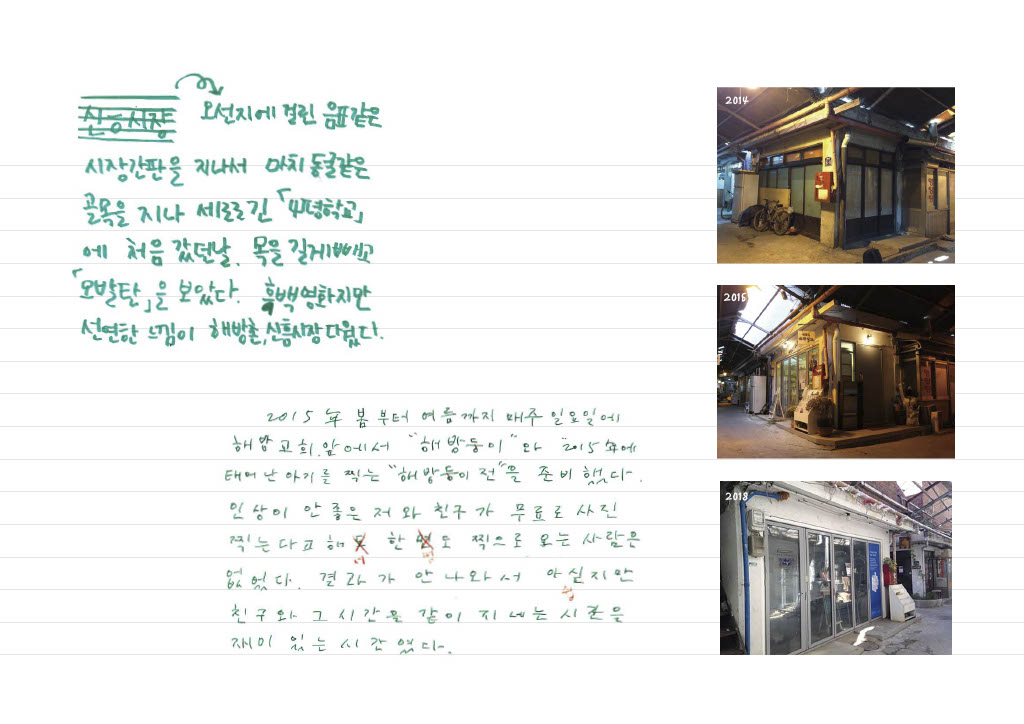 신흥시장 오선지에 걸린 음표같은
시장간판을 지나서 마치 동굴같은
골목을 지나 세로로 긴 「4평학교」
에 처음 갔던날. 목을 길게 빼고
「오발탄」을 보았다. 흑백영화지만
선연한 느낌이 해방촌, 신흥시장 다웠다.
2015年 봄부터 여름까지 매주 일요일에
해방교회 앞에서 "해방둥이"와 "2015年에
태어난 아기를 찍는 "해방둥이 전"을 준비했다.
인상이 안 좋은 저와 친구가 무료로 사진
찍는다고 해도 한 도 찍으로 오는 사람은
서 명
없었다. 결과가 안 나와서 아싶지만
쉽
친구와 그 시간을 같이 지네는 시간을
재미 있는 시간 였다.
2014
2015
2018